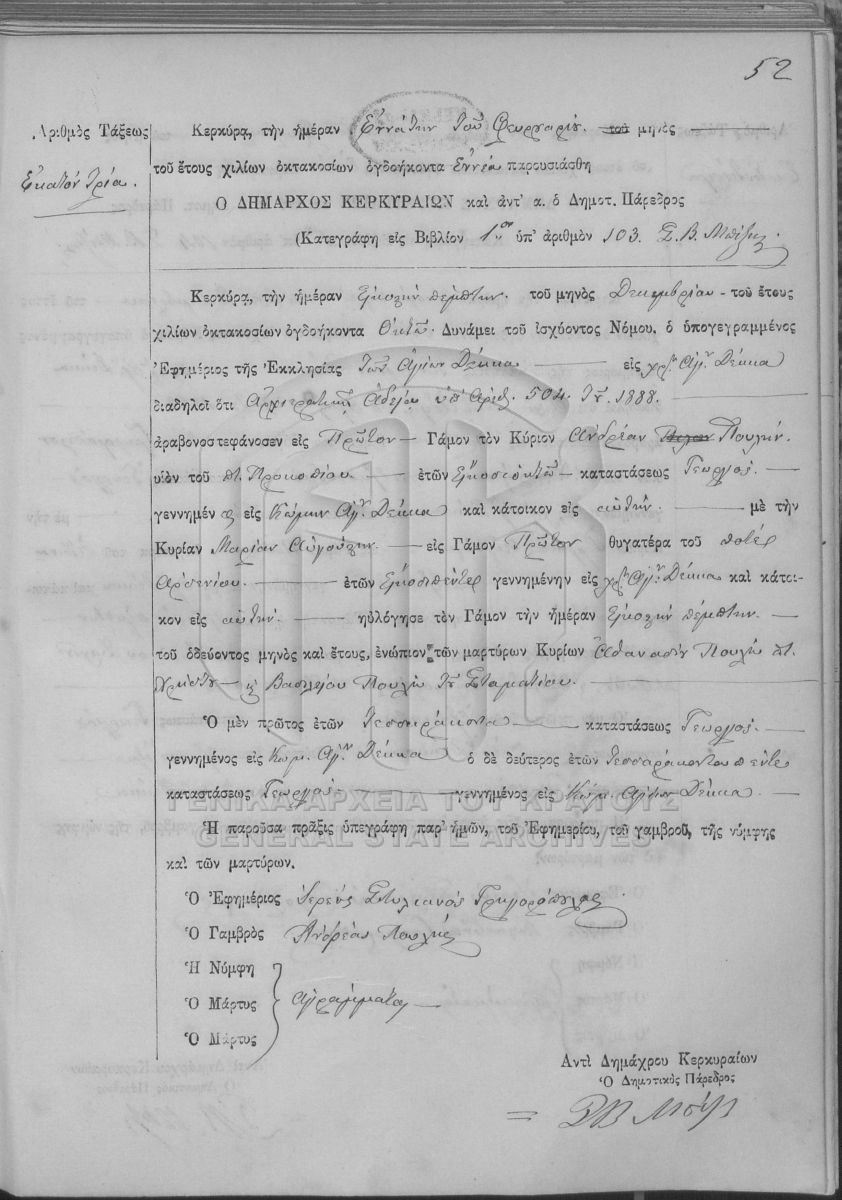 52
Ἀριθμὸς Τάξεως
Ἑκατόν τρία.
Κερκύρᾳ, τὴν ἡμέραν Ἐννάτην τοῦ Φευρουαρίου τοῦ μηνὸς
τοῦ ἔτους χιλίων ὀκτακοσίων ὀγδοήκοντα Ἐννέα παρουσιάσθη
Ὁ ΔΗΜΑΡΧΟΣ ΚΕΡΚΥΡΑΙΩΝ καὶ ἀντ' α. ὁ Δημοτ. Πάρεδρος
(Κατεγράφη εἰς Βιβλίον 1ον ὑπ' ἀριθμὸν 103.
Κερκύρᾳ, τὴν ἡμέραν εἰκοστὴν πέμπτην. τοῦ μηνὸς Δεκεμβρίου - τοῦ ἔτους
χιλίων ὀκτακοσίων ὀγδοήκοντα Ὀκτώ. Δυνάμει τοῦ ἰσχύοντος Νόμου, ὁ ὑπογεγραμμένος
Ἐφημέριος τῆς Ἐκκλησίας τῶν Ἁγίων Δέκκα εἰς χρ. Ἁγ. Δέκκα
διαδηλοῖ ὅτι Ἀρχιερατικῇ Ἀδείᾳ ὑπ' Ἀριθ. 504. 1888.
ἀραβονοστεφάνοσεν εἰς Πρῶτον - Γάμον τὸν Κύριον Ἀνδρέαν Πουλήν.
υἱὸν τοῦ πτ. Προκοπίου. - ἐτῶν εἰκοσιοκτώ - καταστάσεως Γεωργός. -
γεννημένος εἰς Κώμην Ἁγ. Δέκκα καὶ κάτοικον εἰς αὐτήν. - μὲ τὴν
Κυρίαν Μαρίαν Αὐγούστην - εἰς Γάμον Πρῶτον θυγατέρα τοῦ ποτέ
Ἀρσενίου. - ἐτῶν εἰκοσιπέντε γεννημένην εἰς χρ. Ἁγ. Δέκκα καὶ κάτοι-
κον εἰς αὐτήν. - ηὐλόγησε τὸν Γάμον τὴν ἡμέραν εἰκοστὴν πέμπτην. -
τοῦ ὁδεύοντος μηνὸς καὶ ἔτους, ἐνώπιον τῶν μαρτύρων Κυρίων Ἀθανασίου Πουλῆ πτ.
Χρήστου - κ Βασιλείου Πουλῆ τοῦ Σταματίου. -
Ὁ μὲν πρῶτος ἐτῶν τεσσαράκοντα καταστάσεως Γεωργός. -
γεννημένος εἰς Κώμ. Ἁγ. Δέκκα ὁ δὲ δεύτερος ἐτῶν τεσσαράκοντα πέντε
καταστάσεως Γεωργός γεννημένος εἰς Κώμ. Ἁγίων Δέκκα. -
ΓΕΝΙΚΑ ΑΡΧΕΙΑ ΤΟΥ ΚΡΑΤΟΥΣ
GENERAL STATE ARCHIVES
Ἡ παροῦσα πρᾶξις ὑπεγράφη παρ' ἡμῶν, τοῦ Ἐφημερίου, τοῦ γαμβροῦ, τῆς νύμφης
καὶ τῶν μαρτύρων.
Ὁ Ἐφημέριος Ἱερεὺς Στυλιανός Γρηγορόπουλος
Ὁ Γαμβρὸς Ἀνδρέας Πουλής
Ἡ Νύμφη
Ὁ Μάρτυς ἀγράμματοι
Ὁ Μάρτυς
Αντὶ Δημάχρου Κερκυραίων
Ὁ Δημοτικὸς Πάρεδρος